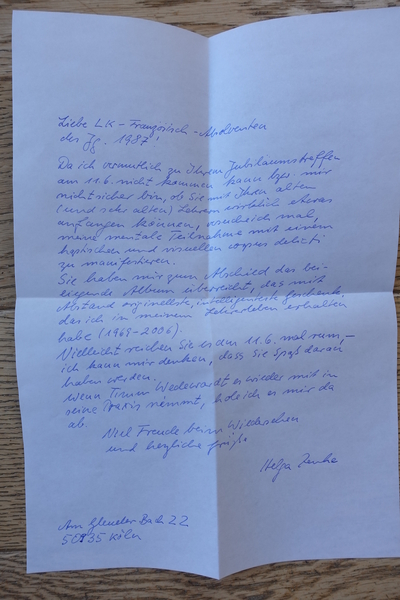 Liebe LK-Französisch-Absolventen
des Jg. 1987!
Da ich vermutlich zu Ihrem Jubiläumstreffen
am 11.6. nicht kommen kann bzw. mir
nicht sicher bin, ob Sie mit Ihren alten
(und sehr alten) Lehrern wirklich etwas
anfangen können, versuche ich mal,
meine mentale Teilnahme mit einem
haptischen und visuellen corpus delicti
zu manifestieren.
Sie haben mir zum Abschied das bei-
liegende Album überreicht, das mit
Abstand originellste, intelligenteste Geschenk,
das ich in meinem Lehrerleben erhalten
habe (1965-2006).
Vielleicht reichen Sie es am 11.6. mal rum,-
ich kann mir denken, dass Sie Spaß daran
haben werden.
Wenn Timm es wieder mit in
seine Praxis nimmt, hole ich es mir da
ab.
Viel Freude beim Wiedersehen
und herzliche Grüße
Helga
Am Gleueler Bach 22
50935 Köln